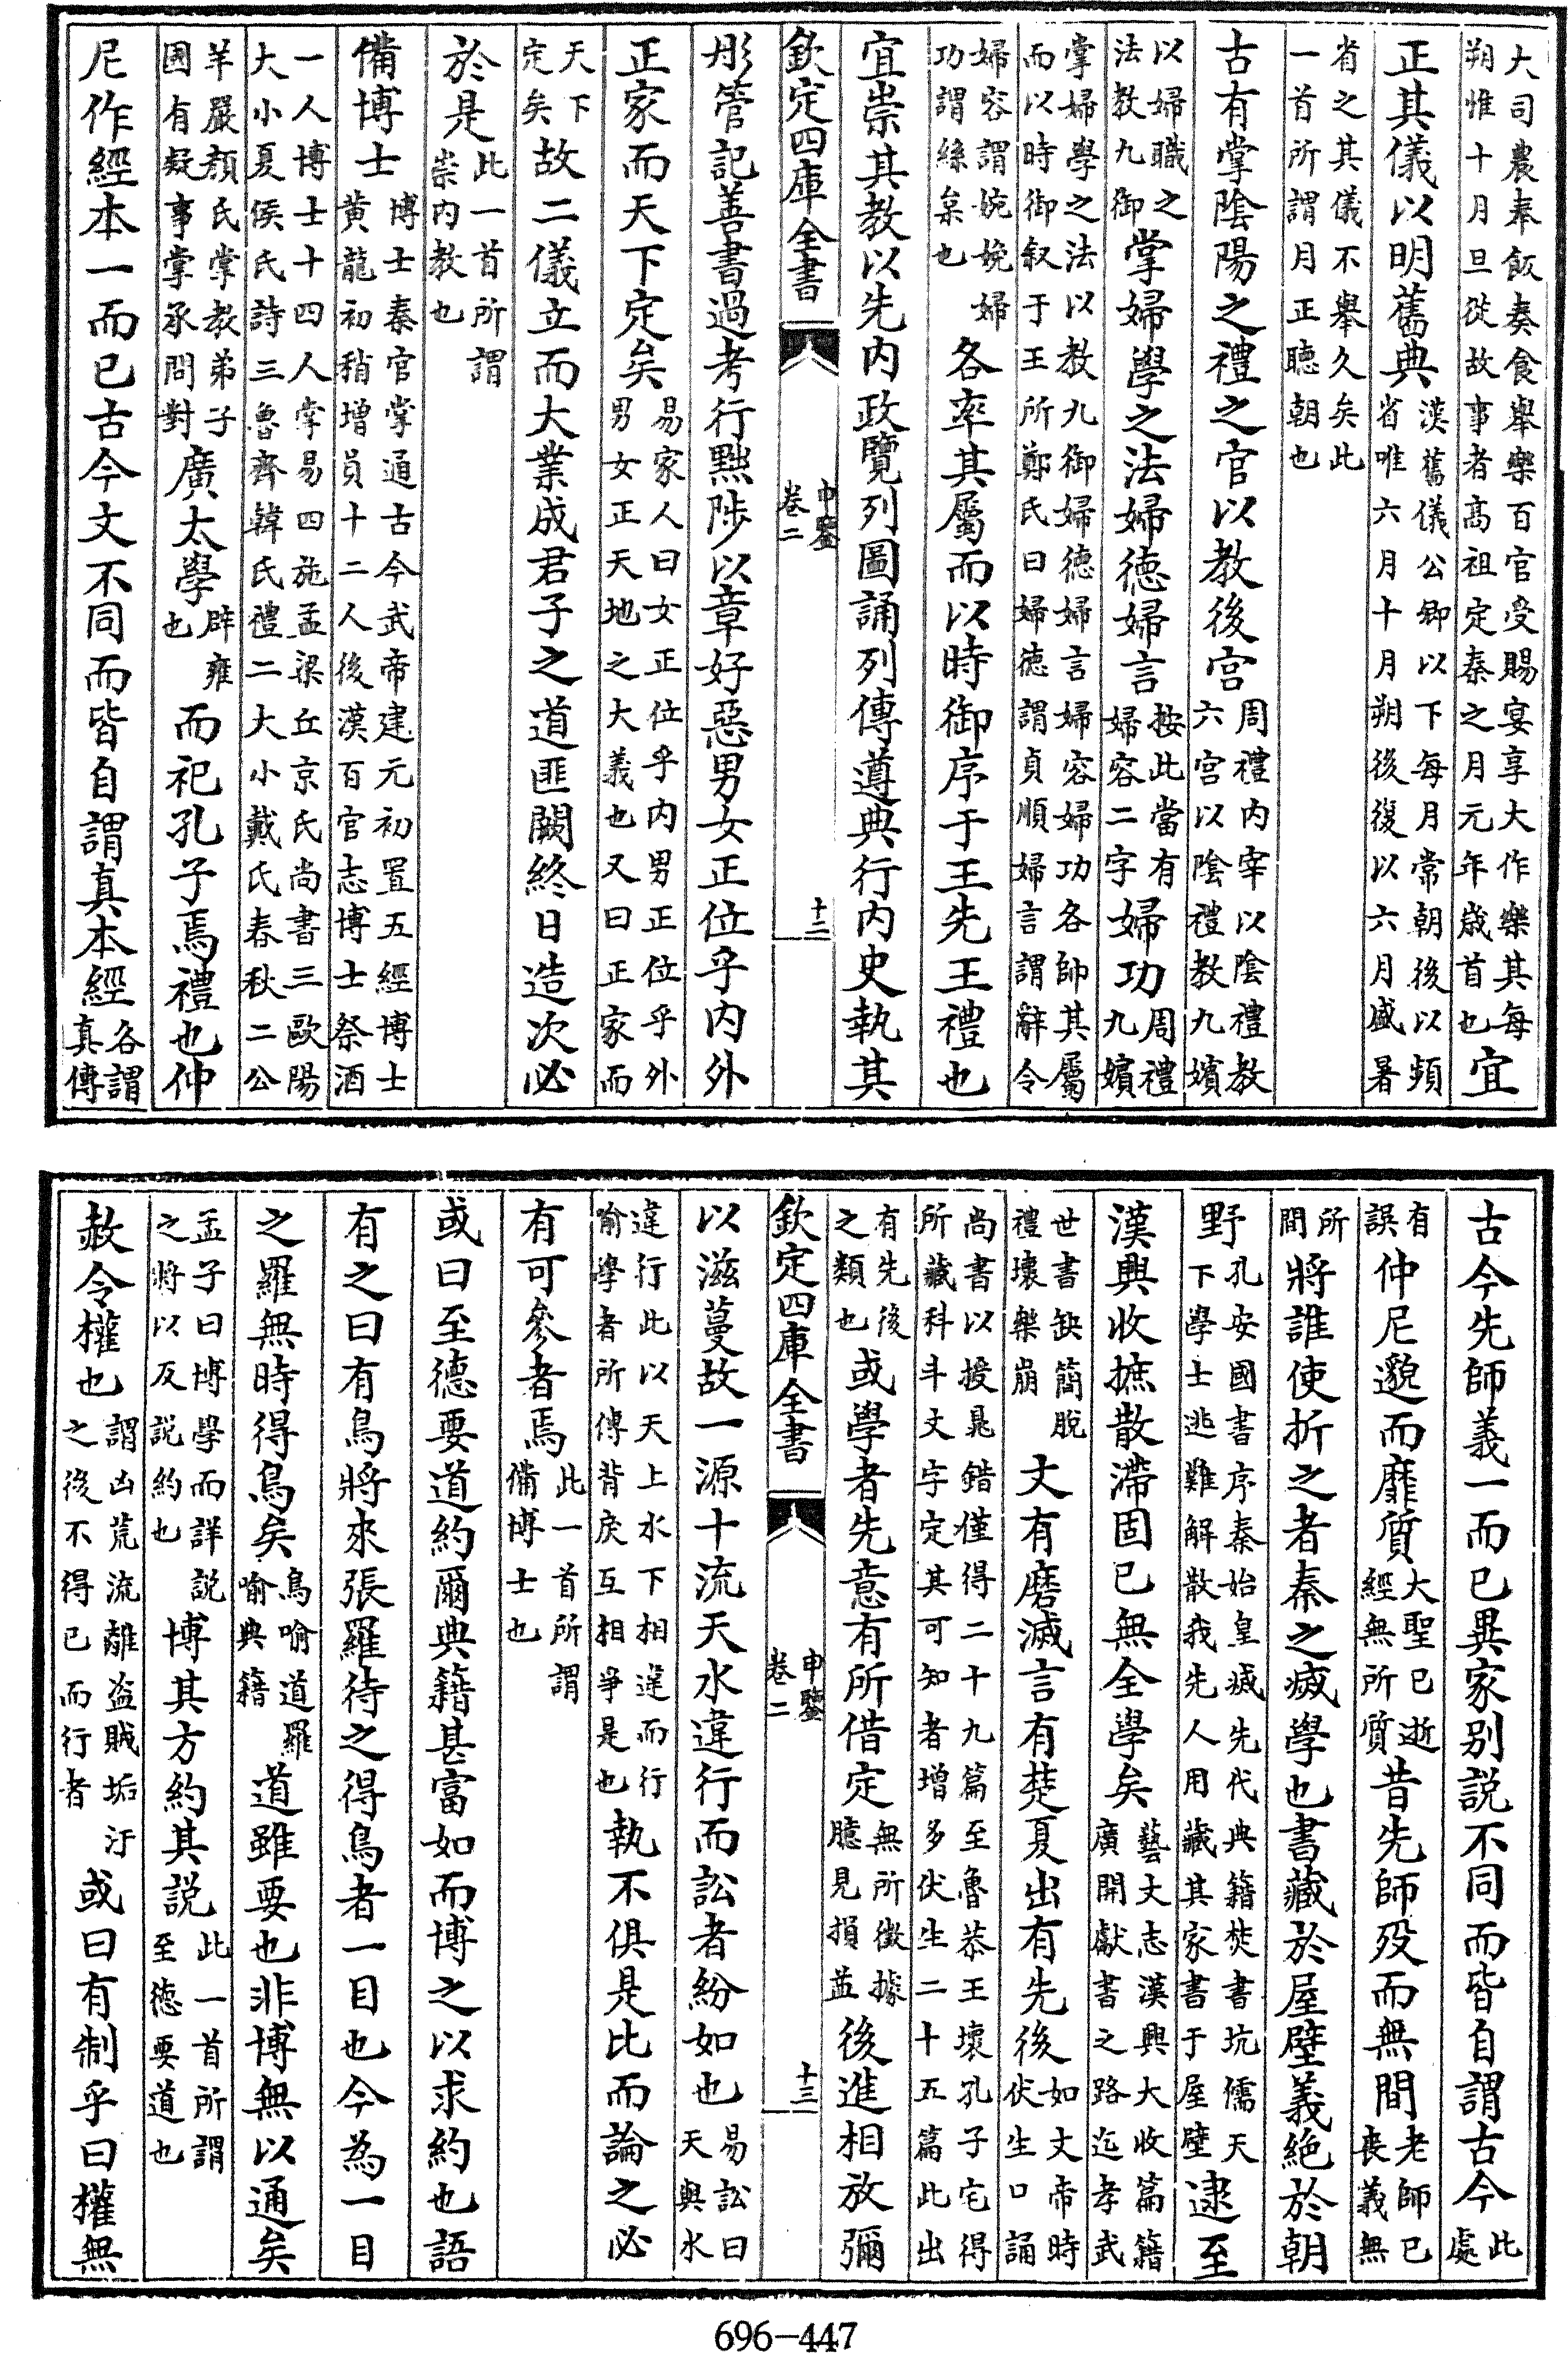 大司農奉飯奏食舉樂百官受賜宴享大作樂其每
朔惟十月旦從故事者高祖定秦之月元年歲首也宜
正其儀以明舊典漢舊儀公卿以下每月常朝後以頻
省唯六月十月朔後復以六月盛暑
省之其儀不舉久矣此
一首所謂月正聽朝也
古有掌陰陽之禮之官以教後宮周禮內宰以陰禮教
六宮以陰禮教九嬪
以婦職之
法教九御掌婦學之法婦德婦言按此當有
婦容二字婦功周禮
九嬪
掌婦學之法以教九御婦德婦言婦容婦功各帥其屬
而以時御叙于王所鄭氏曰婦德謂貞順婦言謂辭令
婦容謂婉娩婦
功謂絲枲也各率其屬而以時御序于王先王禮也
宜崇其教以先內政覽列圖誦列傳遵典行內史執其
欽定四庫全書
申鑒
卷二
十二
彤管記善書過考行黜陟以章好惡男女正位乎內外
正家而天下定矣易家人曰女正位乎內男正位乎外
男女正天地之大義也又曰正家而
天下
定矣故二儀立而大業成君子之道匪闕終日造次必
於是此一首所謂
崇內教也
備博士博士秦官掌通古今武帝建元初置五經博士
黃龍初稍增員十二人後漢百官志博士祭酒
一人博士十四人掌易四施孟梁丘京氏尚書三歐陽
大小夏侯氏詩三魯齊韓氏禮二大小戴氏春秋二公
羊嚴顏氏掌教弟子
國有疑事掌承問對廣太學辟雍
也而祀孔子焉禮也仲
尼作經本一而已古今文不同而皆自謂真本經各謂
真傳
古今先師義一而已異家别説不同而皆自謂古今此
處
有
誤仲尼邈而靡質大聖已逝
經無所質昔先師歿而無間老師已
喪義無
所
間將誰使折之者秦之滅學也書藏於屋壁義絕於朝
野孔安國書序秦始皇滅先代典籍焚書坑儒天
下學士逃難解散我先人用藏其家書于屋壁逮至
漢興收摭散滯固已無全學矣藝文志漢興大收篇籍
廣開獻書之路迄孝武
世書缺簡脫
禮壞樂崩文有磨滅言有楚夏出有先後如文帝時
伏生口誦
尚書以授晁錯僅得二十九篇至魯恭王壞孔子宅得
所藏科斗文字定其可知者增多伏生二十五篇此出
有先後
之類也或學者先意有所借定無所徵據
臆見損益後進相放彌
欽定四庫全書
申鑒
卷二
十三
以滋蔓故一源十流天水違行而訟者紛如也易訟曰
天與水
違行此以天上水下相違而行
喻學者所傳背戾互相爭是也執不俱是比而論之必
有可參者焉此一首所謂
備博士也
或曰至德要道約爾典籍甚富如而博之以求約也語
有之曰有鳥將來張羅待之得鳥者一目也今為一目
之羅無時得鳥矣鳥喻道羅
喻典籍道雖要也非博無以通矣
孟子曰博學而詳說
之將以反説約也博其方約其説此一首所謂
至德要道也
赦令權也謂凶荒流離盜賊垢汙
之後不得已而行者或曰有制乎曰權無
696-447